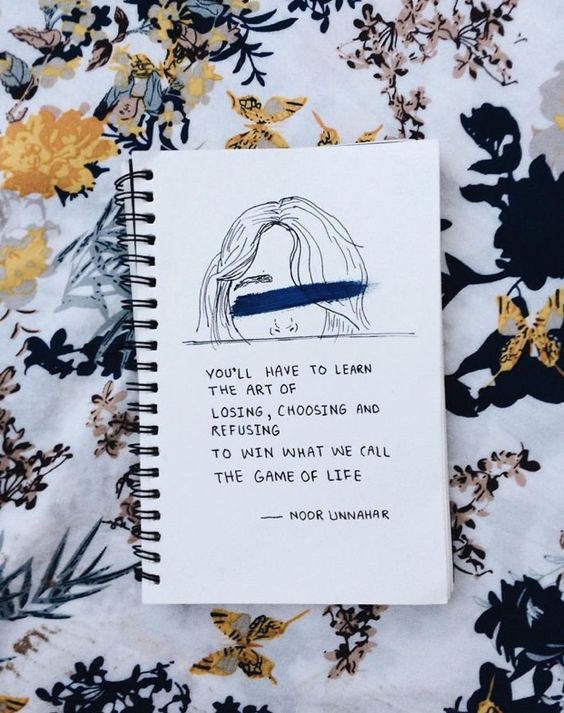 YOU'LL HAVE TO LEARN
THE ART OF
LOSING, CHOOSING AND
REFUSING
TO WIN WHAT WE CALL
THE GAME OF LIFE
— NOOR UNNAHAR